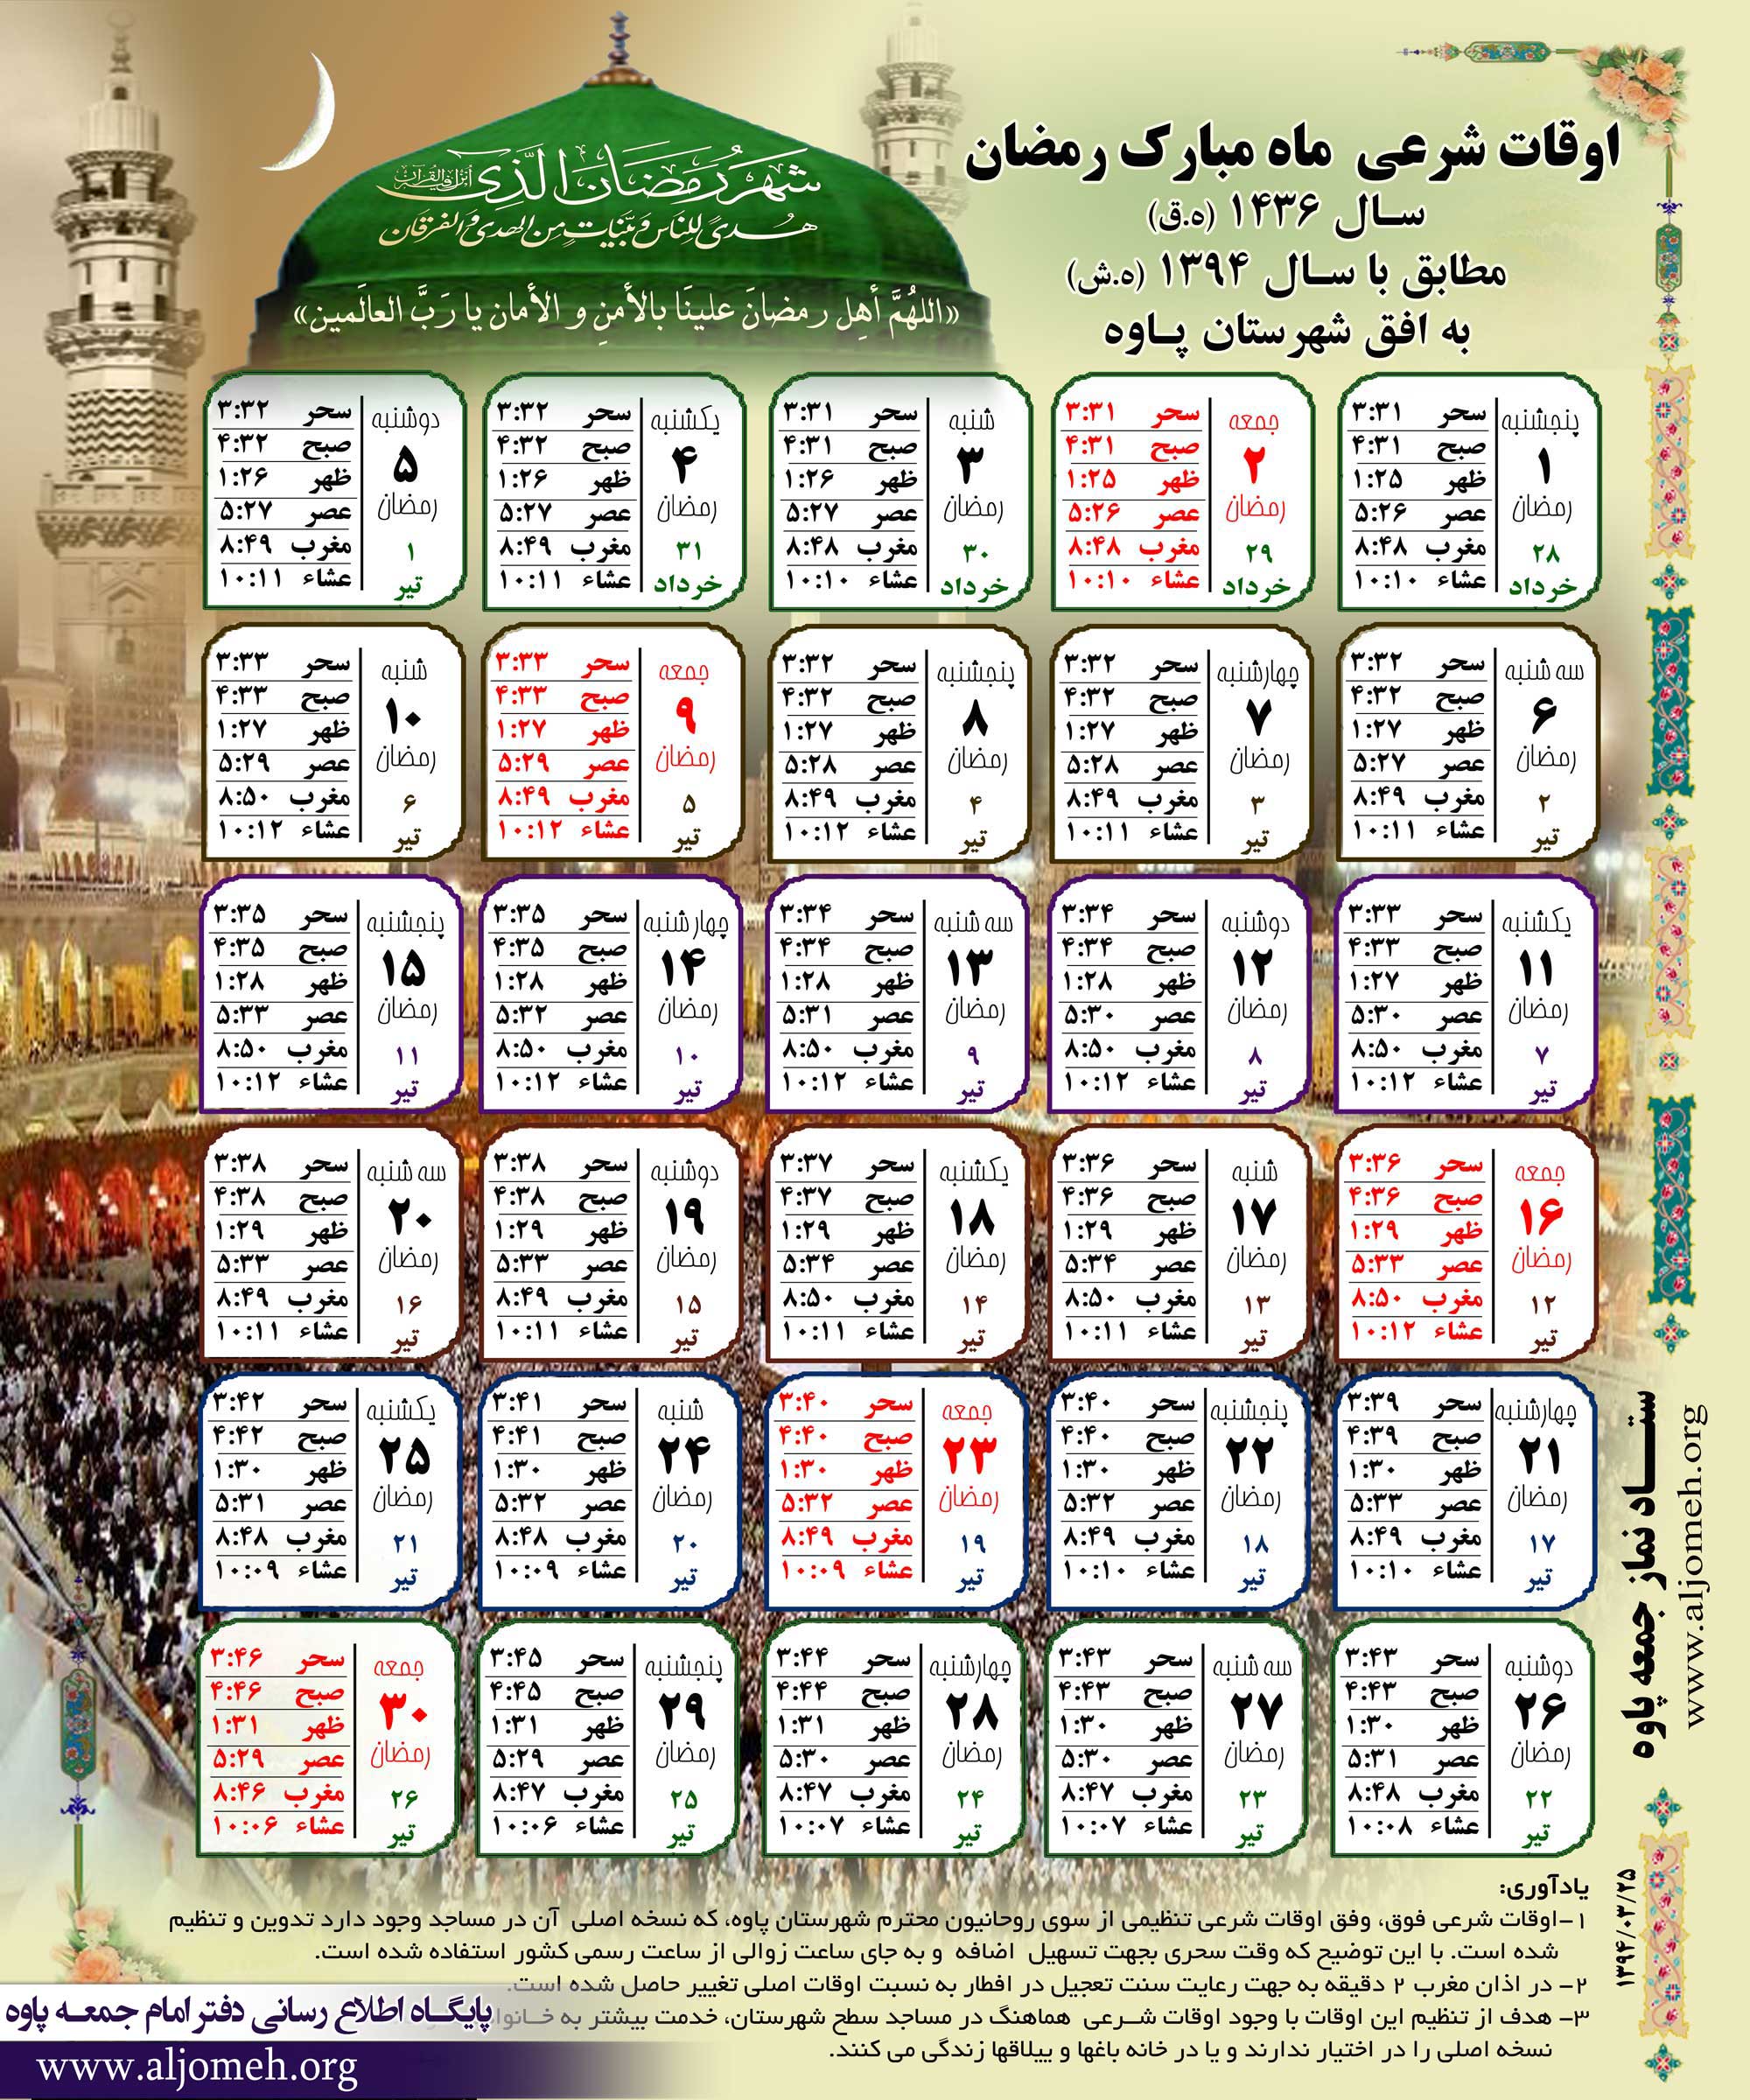 اوقات شرعی ماه مبارک رمضان
سال ۱۴۳۶ (ه.ق)
مطابق با سال ۱۳۹۴ (ه.ش)
به افق شهرستان پاوه
شهر رمضان الذی أنزل فیه القرآن
هدی للناس و بینات من الهدی و الفرقان
«اللهُمَّ أهِل رمضانَ علینَا بالأمنِ و الأمان یا رَبَّ العالَمین»
پنجشنبه ۱ رمضان ۲۸ خرداد
سحر ۳:۳۱
صبح ۴:۳۱
ظهر ۱:۲۵
عصر ۵:۲۶
مغرب ۸:۴۸
عشاء ۱۰:۱۰
جمعه ۲ رمضان ۲۹ خرداد
سحر ۳:۳۱
صبح ۴:۳۱
ظهر ۱:۲۵
عصر ۵:۲۶
مغرب ۸:۴۸
عشاء ۱۰:۱۰
شنبه ۳ رمضان ۳۰ خرداد
سحر ۳:۳۱
صبح ۴:۳۱
ظهر ۱:۲۶
عصر ۵:۲۷
مغرب ۸:۴۸
عشاء ۱۰:۱۰
یکشنبه ۴ رمضان ۳۱ خرداد
سحر ۳:۳۲
صبح ۴:۳۲
ظهر ۱:۲۶
عصر ۵:۲۷
مغرب ۸:۴۹
عشاء ۱۰:۱۱
دوشنبه ۵ رمضان ۱ تیر
سحر ۳:۳۲
صبح ۴:۳۲
ظهر ۱:۲۶
عصر ۵:۲۷
مغرب ۸:۴۹
عشاء ۱۰:۱۱
سه شنبه ۶ رمضان ۲ تیر
سحر ۳:۳۲
صبح ۴:۳۲
ظهر ۱:۲۷
عصر ۵:۲۷
مغرب ۸:۴۹
عشاء ۱۰:۱۱
چهارشنبه ۷ رمضان ۳ تیر
سحر ۳:۳۲
صبح ۴:۳۲
ظهر ۱:۲۷
عصر ۵:۲۸
مغرب ۸:۴۹
عشاء ۱۰:۱۱
پنجشنبه ۸ رمضان ۴ تیر
سحر ۳:۳۲
صبح ۴:۳۲
ظهر ۱:۲۷
عصر ۵:۲۸
مغرب ۸:۴۹
عشاء ۱۰:۱۲
جمعه ۹ رمضان ۵ تیر
سحر ۳:۳۳
صبح ۴:۳۳
ظهر ۱:۲۷
عصر ۵:۲۹
مغرب ۸:۴۹
عشاء ۱۰:۱۲
شنبه ۱۰ رمضان ۶ تیر
سحر ۳:۳۳
صبح ۴:۳۳
ظهر ۱:۲۷
عصر ۵:۲۹
مغرب ۸:۵۰
عشاء ۱۰:۱۲
یکشنبه ۱۱ رمضان ۷ تیر
سحر ۳:۳۳
صبح ۴:۳۳
ظهر ۱:۲۷
عصر ۵:۳۰
مغرب ۸:۵۰
عشاء ۱۰:۱۲
دوشنبه ۱۲ رمضان ۸ تیر
سحر ۳:۳۴
صبح ۴:۳۴
ظهر ۱:۲۸
عصر ۵:۳۰
مغرب ۸:۵۰
عشاء ۱۰:۱۲
سه شنبه ۱۳ رمضان ۹ تیر
سحر ۳:۳۴
صبح ۴:۳۴
ظهر ۱:۲۸
عصر ۵:۳۱
مغرب ۸:۵۰
عشاء ۱۰:۱۲
چهارشنبه ۱۴ رمضان ۱۰ تیر
سحر ۳:۳۵
صبح ۴:۳۵
ظهر ۱:۲۸
عصر ۵:۳۲
مغرب ۸:۵۰
عشاء ۱۰:۱۲
پنجشنبه ۱۵ رمضان ۱۱ تیر
سحر ۳:۳۵
صبح ۴:۳۵
ظهر ۱:۲۸
عصر ۵:۳۳
مغرب ۸:۵۰
عشاء ۱۰:۱۲
جمعه ۱۶ رمضان ۱۲ تیر
سحر ۳:۳۶
صبح ۴:۳۶
ظهر ۱:۲۹
عصر ۵:۳۳
مغرب ۸:۵۰
عشاء ۱۰:۱۲
شنبه ۱۷ رمضان ۱۳ تیر
سحر ۳:۳۶
صبح ۴:۳۶
ظهر ۱:۲۹
عصر ۵:۳۴
مغرب ۸:۵۰
عشاء ۱۰:۱۱
یکشنبه ۱۸ رمضان ۱۴ تیر
سحر ۳:۳۷
صبح ۴:۳۷
ظهر ۱:۲۹
عصر ۵:۳۴
مغرب ۸:۵۰
عشاء ۱۰:۱۱
دوشنبه ۱۹ رمضان ۱۵ تیر
سحر ۳:۳۸
صبح ۴:۳۸
ظهر ۱:۲۹
عصر ۵:۳۳
مغرب ۸:۴۹
عشاء ۱۰:۱۱
سه شنبه ۲۰ رمضان ۱۶ تیر
سحر ۳:۳۸
صبح ۴:۳۸
ظهر ۱:۲۹
عصر ۵:۳۳
مغرب ۸:۴۹
عشاء ۱۰:۱۱
چهارشنبه ۲۱ رمضان ۱۷ تیر
سحر ۳:۳۹
صبح ۴:۳۹
ظهر ۱:۳۰
عصر ۵:۳۳
مغرب ۸:۴۹
عشاء ۱۰:۱۰
پنجشنبه ۲۲ رمضان ۱۸ تیر
سحر ۳:۴۰
صبح ۴:۴۰
ظهر ۱:۳۰
عصر ۵:۳۲
مغرب ۸:۴۹
عشاء ۱۰:۱۰
جمعه ۲۳ رمضان ۱۹ تیر
سحر ۳:۴۰
صبح ۴:۴۰
ظهر ۱:۳۰
عصر ۵:۳۲
مغرب ۸:۴۹
عشاء ۱۰:۰۹
شنبه ۲۴ رمضان ۲۰ تیر
سحر ۳:۴۱
صبح ۴:۴۱
ظهر ۱:۳۰
عصر ۵:۳۲
مغرب ۸:۴۸
عشاء ۱۰:۰۹
یکشنبه ۲۵ رمضان ۲۱ تیر
سحر ۳:۴۲
صبح ۴:۴۲
ظهر ۱:۳۰
عصر ۵:۳۱
مغرب ۸:۴۸
عشاء ۱۰:۰۹
دوشنبه ۲۶ رمضان ۲۲ تیر
سحر ۳:۴۳
صبح ۴:۴۳
ظهر ۱:۳۰
عصر ۵:۳۱
مغرب ۸:۴۸
عشاء ۱۰:۰۸
سه شنبه ۲۷ رمضان ۲۳ تیر
سحر ۳:۴۳
صبح ۴:۴۳
ظهر ۱:۳۰
عصر ۵:۳۰
مغرب ۸:۴۷
عشاء ۱۰:۰۷
چهارشنبه ۲۸ رمضان ۲۴ تیر
سحر ۳:۴۴
صبح ۴:۴۴
ظهر ۱:۳۱
عصر ۵:۳۰
مغرب ۸:۴۷
عشاء ۱۰:۰۷
پنجشنبه ۲۹ رمضان ۲۵ تیر
سحر ۳:۴۵
صبح ۴:۴۵
ظهر ۱:۳۱
عصر ۵:۲۹
مغرب ۸:۴۷
عشاء ۱۰:۰۶
جمعه ۳۰ رمضان ۲۶ تیر
سحر ۳:۴۶
صبح ۴:۴۶
ظهر ۱:۳۱
عصر ۵:۲۹
مغرب ۸:۴۶
عشاء ۱۰:۰۶
ستاد نماز جمعه پاوه
www.aljomeh.org
۱۳۹۴/۰۳/۲۵
یادآوری:
۱-اوقات شرعی فوق، وفق اوقات شرعی تنظیمی از سوی روحانیون محترم شهرستان پاوه، که نسخه اصلی آن در مساجد وجود دارد تدوین و تنظیم
شده است. با این توضیح که وقت سحری بجهت تسهیل اضافه و به جای ساعت زوالی از ساعت رسمی کشور استفاده شده است.
۲- در اذان مغرب ۲ دقیقه به جهت رعایت سنت تعجیل در افطار به نسبت اوقات اصلی تغییر حاصل شده است.
۳- هدف از تنظیم این اوقات با وجود اوقات شرعی هماهنگ در مساجد سطح شهرستان، خدمت بیشتر به
نسخه اصلی را در اختیار ندارند و یا در خانه باغها و ییلاقها زندگی می کنند.
پایگاه اطلاع رسانی دفتر امام جمعه پاوه
www.aljomeh.org